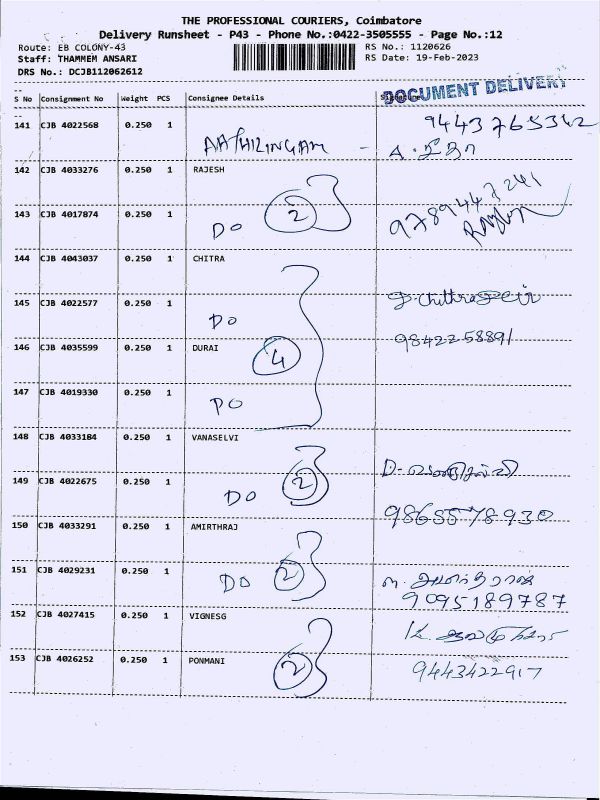 THE PROFESSIONAL COURIERS, Coimbatore
Delivery Runsheet - P43 - Phone No.:0422-3505555 - Page No.:12
Route: EB COLONY-43 RS No.: 1120626
Staff: THAMMEM ANSARI RS Date: 19-Feb-2023
DRS No.: DCJB112062612
DOCUMENT DELIVERY
S No Consignment No Weight PCS Consignee Details
9443765342
141 CJB 4022568 0.250 1 AATHILINGAM -
142 CJB 4033276 0.250 1 RAJESH
9789447241
143 CJB 4017874 0.250 1 DO 2
144 CJB 4043037 0.250 1 CHITRA
145 CJB 4022577 0.250 1 DO
146 CJB 4035599 0.250 1 DURAI 4 9842258891
147 CJB 4019330 0.250 1 DO
148 CJB 4033184 0.250 1 VANASELVI
149 CJB 4022675 0.250 1 DO 2
9865578930
150 CJB 4033291 0.250 1 AMIRTHRAJ
151 CJB 4029231 0.250 1 DO 2
9095189787
152 CJB 4027415 0.250 1 VIGNESG
153 CJB 4026252 0.250 1 PONMANI 2 9443422917